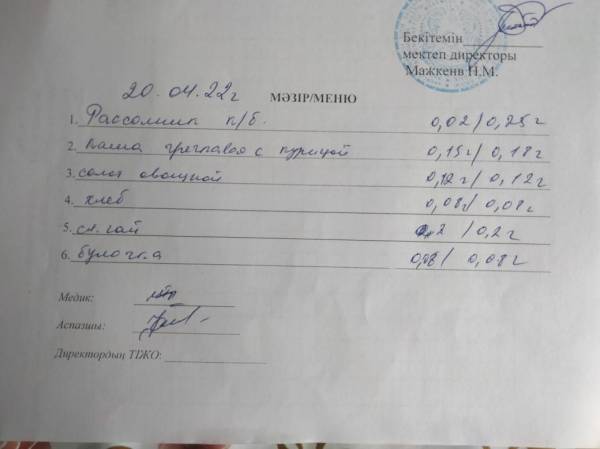 Бекітемін
мектеп директоры
Мажкенв Н.М.
20.04.22г МӘЗІР/МЕНЮ
1. Рассольник п/б. 0,02/0,25г
2. Каша гречневая с курицой 0,15г/0,18г
3. салат овощной 0,12г/0,12г
4. хлеб 0,08г/0,08г
5. сл. чай 0,2/0,2г
6. булочка 0,08/0,08г
Медик:
Аспазшы:
Директордың ТІЖО: